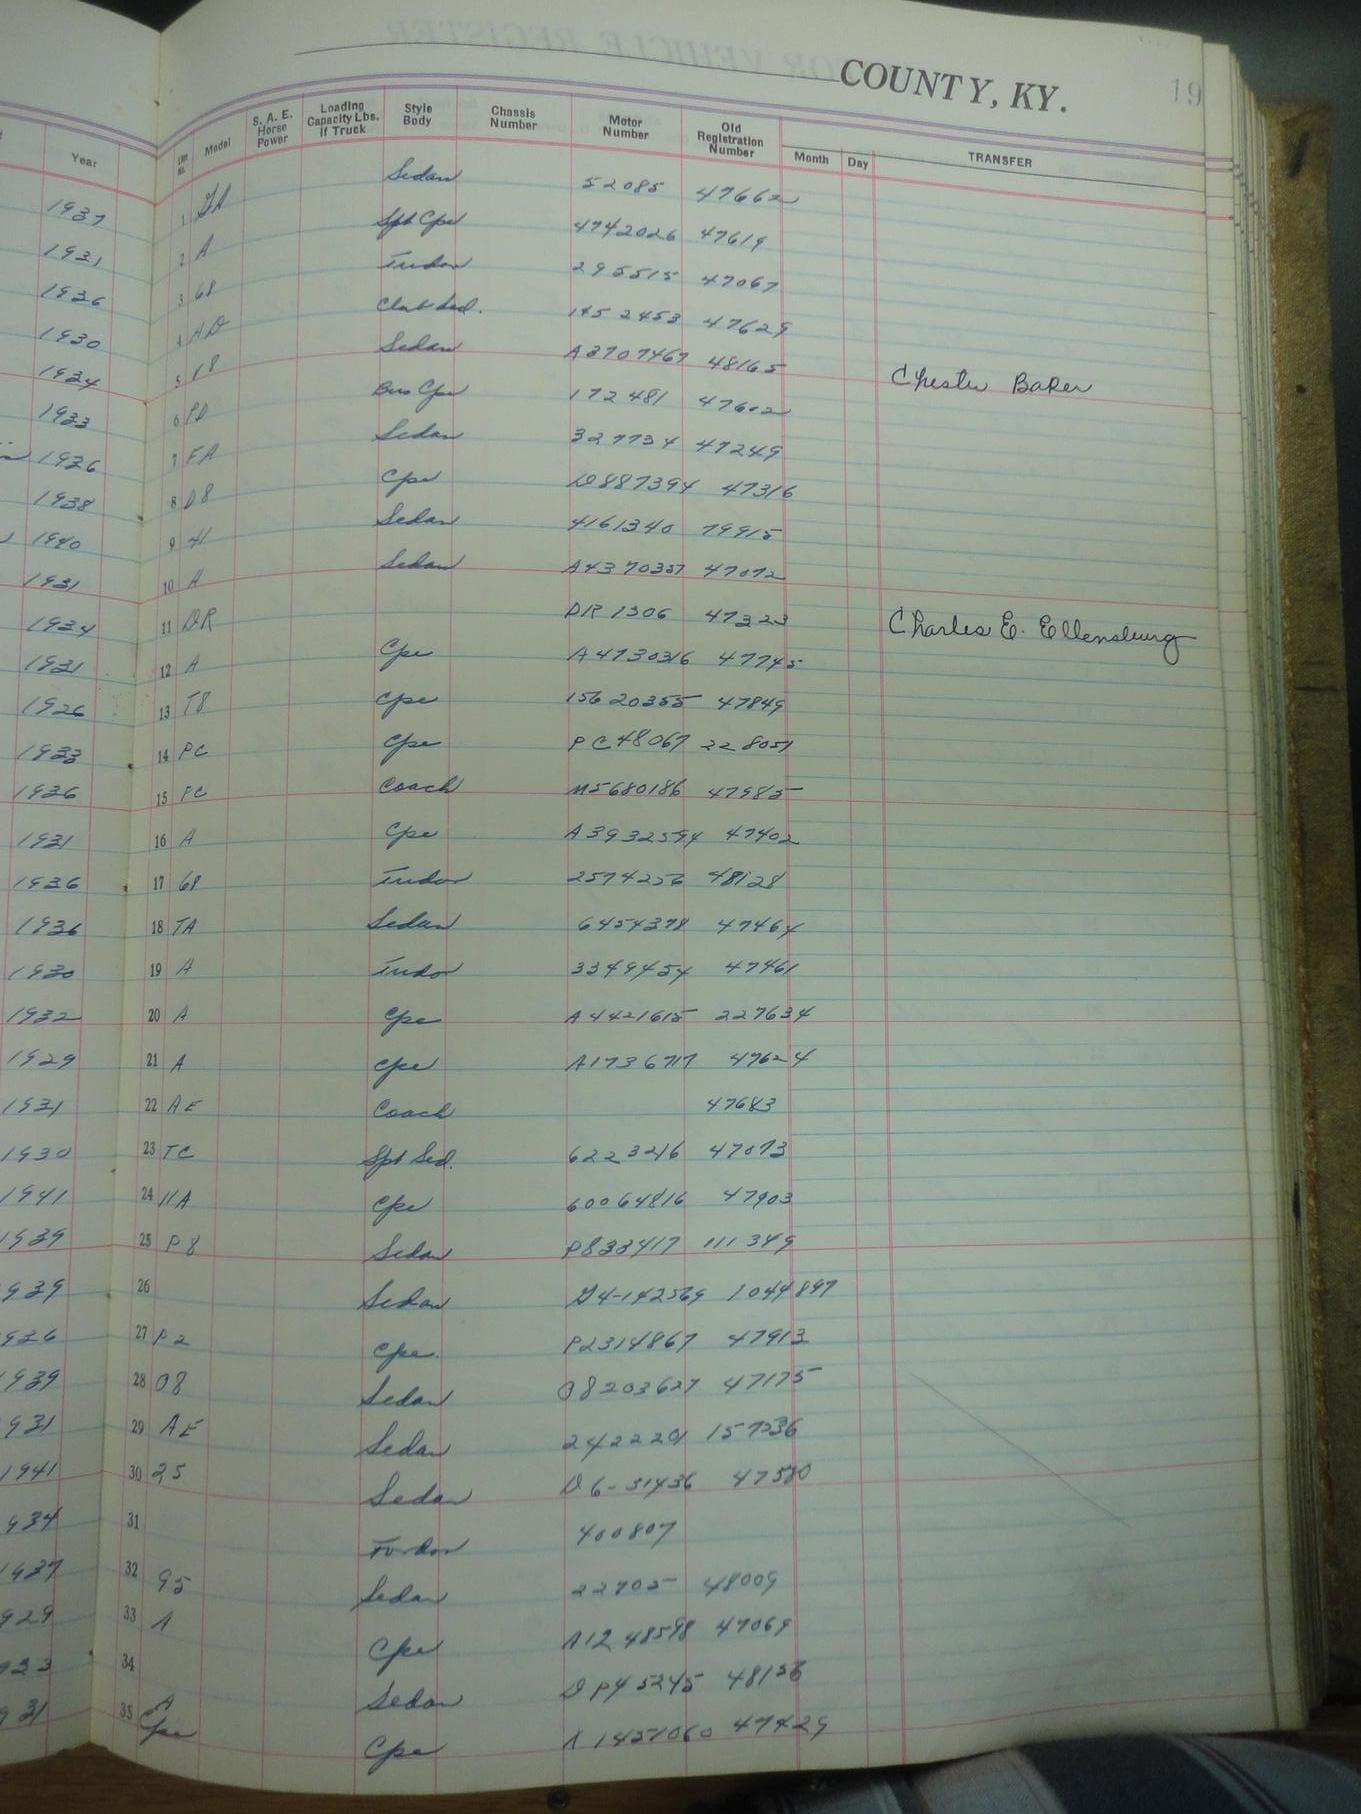 COUNTY, KY. 19
Year Line No. Model S. A. E. Horse Power Loading Capacity Lbs. If Truck Style Body Chassis Number Motor Number Old Registration Number Month Day TRANSFER
1937 1 GA Sedan 52085 47662
1931 2 A Spt Cpe 4742026 47619
1936 3 68 Tudor 295515 47067
1930 4 AD Club Sed. 1452453 47629
1934 5 V8 Sedan A3707467 48165 Chester Baker
1933 6 PD Bus Cpe 172481 47602
1936 7 FA Sedan 327734 47249
1938 8 D8 Cpe D887394 47316
1940 9 41 Sedan 4161340 79915
1931 10 A Sedan A4370357 47072
1934 11 DR DR 1306 47323 Charles E. Ellensburg
1931 12 A Cpe A4730316 47745
1926 13 T8 Cpe 15620355 47849
1933 14 PC Cpe PC48067 228051
1936 15 FC Coach M5680186 47985
1931 16 A Cpe A3932594 47402
1936 17 68 Tudor 2574256 48128
1936 18 TA Sedan 6454378 47464
1930 19 A Tudor 3349454 47461
1932 20 A Cpe A4421615 227634
1929 21 A Cpe A1736717 47624
1931 22 AE Coach 47683
1930 23 TC Spt Sed. 6223216 47073
1941 24 11A Cpe 60064816 47903
1939 25 P8 Sedan P833417 111349
939 26 Sedan G4-142569 1044897
936 27 P2 Cpe. P2314867 47913
939 28 08 Sedan 08203627 47175
931 29 AE Sedan 2422201 157236
1941 30 25 Sedan D6-31436 47580
934 31 Fordor 400807
1937 32 95 Sedan 22705 48009
929 33 A Cpe A1248598 47069
933 34 Sedan DP45245 48136
931 35 A Cpe Cpe A1451060 47429